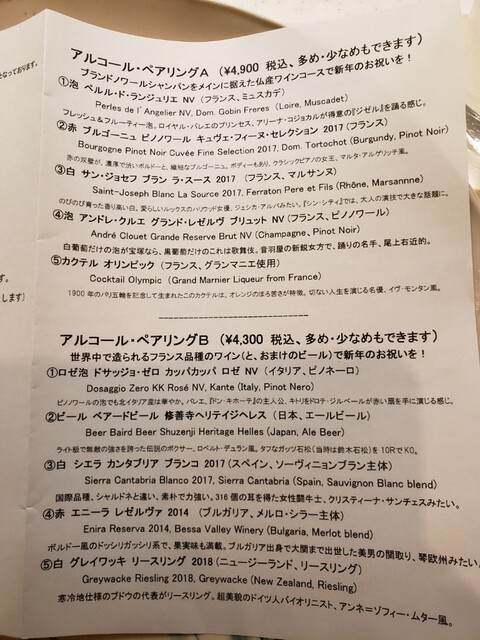 となっております。
アルコール・ペアリングA （¥4,900 税込、多め・少なめもできます）
ブランドノワールシャンパンをメインに据えた仏産ワインコースで新年のお祝いを！
①泡 ペルル・ド・ランジュリエ NV（フランス、ミュスカデ）
Perles de l'Angelier NV, Dom. Gobin Freres （Loire, Muscadet）
フレッシュ＆フルーティー泡。ロイヤル・バレエのプリンセス、アリーナ・コジョカルが得意の『ジゼル』を踊る感じ。
②赤 ブルゴーニュ ピノノワール キュヴェ・フィーヌ・セレクション 2017（フランス）
Bourgogne Pinot Noir Cuvée Fine Selection 2017, Dom. Tortochot (Burgundy, Pinot Noir)
赤の双璧が、濃厚で渋いボルドーと、繊細なブルゴーニュ。ボディーもあり、クラシックピアノの女王、マルタ・アルゲリッチ風。
③白 サン・ジョセフ ブラン ラ・スース 2017 （フランス、マルサンヌ）
Saint-Joseph Blanc La Source 2017, Ferraton Pere et Fils (Rhône, Marsannne)
のびのび育った香り高い白。愛らしいルックスのハリウッド女優、ジェシカ・アルバみたい。『シン・シティ』では、大人の演技で大きな話題に。
④泡 アンドレ・クルエ グランド・レゼルヴ ブリュット NV（フランス、ピノノワール）
André Clouet Grande Reserve Brut NV (Champagne, Pinot Noir)
白葡萄だけの泡が宝塚なら、黒葡萄だけのこれは歌舞伎。音羽屋の新鋭女方で、踊りの名手、尾上右近的。
⑤カクテル オリンピック（フランス、グランマニエ使用）
Cocktail Olympic （Grand Marnier Liqueur from France）
1900 年のパリ五輪を記念して生まれたこのカクテルは、オレンジのほろ苦さが特徴。切ない人生を演じる名優、イヴ・モンタン風。
アルコール・ペアリングB （¥4,300 税込、多め・少なめもできます）
世界中で造られるフランス品種のワイン（と、おまけのビール）で新年のお祝いを！
①ロゼ泡 ドサッジョ・ゼロ カッパカッパ ロゼ NV （イタリア、ピノネーロ）
Dosaggio Zero KK Rosé NV, Kante (Italy, Pinot Nero)
ピノノワールの泡でも北イタリア産は華やか。バレエ、『ドン・キホーテ』の主人公、キトリをドロテ・ジルベールが赤い扇を手に演じる感じ。
②ビール ベアードビール 修善寺ヘリテイジヘレス （日本、エールビール）
Beer Baird Beer Shuzenji Heritage Helles (Japan, Ale Beer)
ライト級で無敵の強さを誇った伝説のボクサー、ロベルト・デュラン風。タフなガッツ石松（当時は鈴木石松）を 10R で KO。
③白 シエラ カンタブリア ブランコ 2017（スペイン、ソーヴィニョンブラン主体）
Sierra Cantabria Blanco 2017, Sierra Cantabria (Spain, Sauvignon Blanc blend)
国際品種、シャルドネと違い、素朴で力強い。316 個の耳を得た女性闘牛士、クリスティーナ・サンチェスみたい。
④赤 エニーラ レゼルヴァ 2014 （ブルガリア、メルロ・シラー主体）
Enira Reserva 2014, Bessa Valley Winery (Bulgaria, Merlot blend)
ボルドー風のドッシリガッシリ系で、果実味も満載。ブルガリア出身で大関まで出世した美男の関取り、琴欧州みたい。
⑤白 グレイワッキ リースリング 2018（ニュージーランド、リースリング）
Greywacke Riesling 2018, Greywacke (New Zealand, Riesling)
寒冷地仕様のブドウの代表がリースリング。超美貌のドイツ人バイオリニスト、アンネ＝ゾフィー・ムター風。
す。
します）